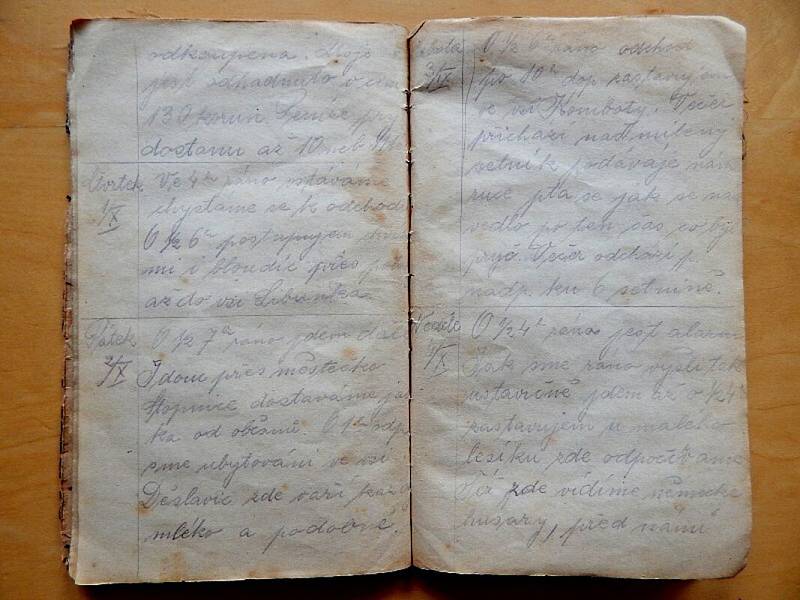 odkoupena. Moje
jest odhadnuto v ceně
130 korun
dostanu až 10
Čtvrtek Ve 4h ráno vstáváme
1/X chystáme se k odchodu
O ½ 6h postupujem
mi i bloudíc přes
až do vsi
Pátek O ½ 7h ráno jdem dále
2/X Jdou přes městečko
Stopnice dostaváme
ka od občanů. O
sme ubytováni ve vsi
Déslavic zde vaří
mléko a podobně.
Sobota O ½ 6h ráno odchod
3/X po 10h dop zastavujem
ve vsi Komboty. Večer
přichází nadmilený
setník podávaje nám
ruce ptá se jak se nám
vedlo po ten čas co byl
pryč. Večer odchází p.
nadp. ku 6 setnině.
Neděle O ½4h ráno jest alarm
4/X Jak sme ráno vyšli tak
ustavičně jdem až o ½4h
zastavujem u malého
lesíku zde odpočíváme
zde vidíme německé
husary, před námi